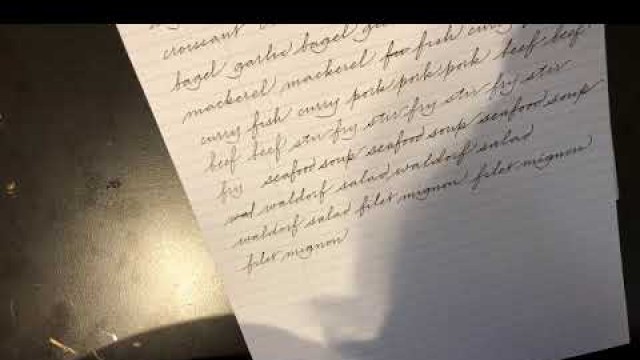 croissant
bagel garlic bagel
mackerel mackerel fish curry
curry fish curry pork pork pork beef beef
beef beef stir fry stir fry stir fry stir
fry seafood soup seafood soup seafood soup
waldorf salad waldorf salad
waldorf salad filet mignon filet mignon
filet mignon